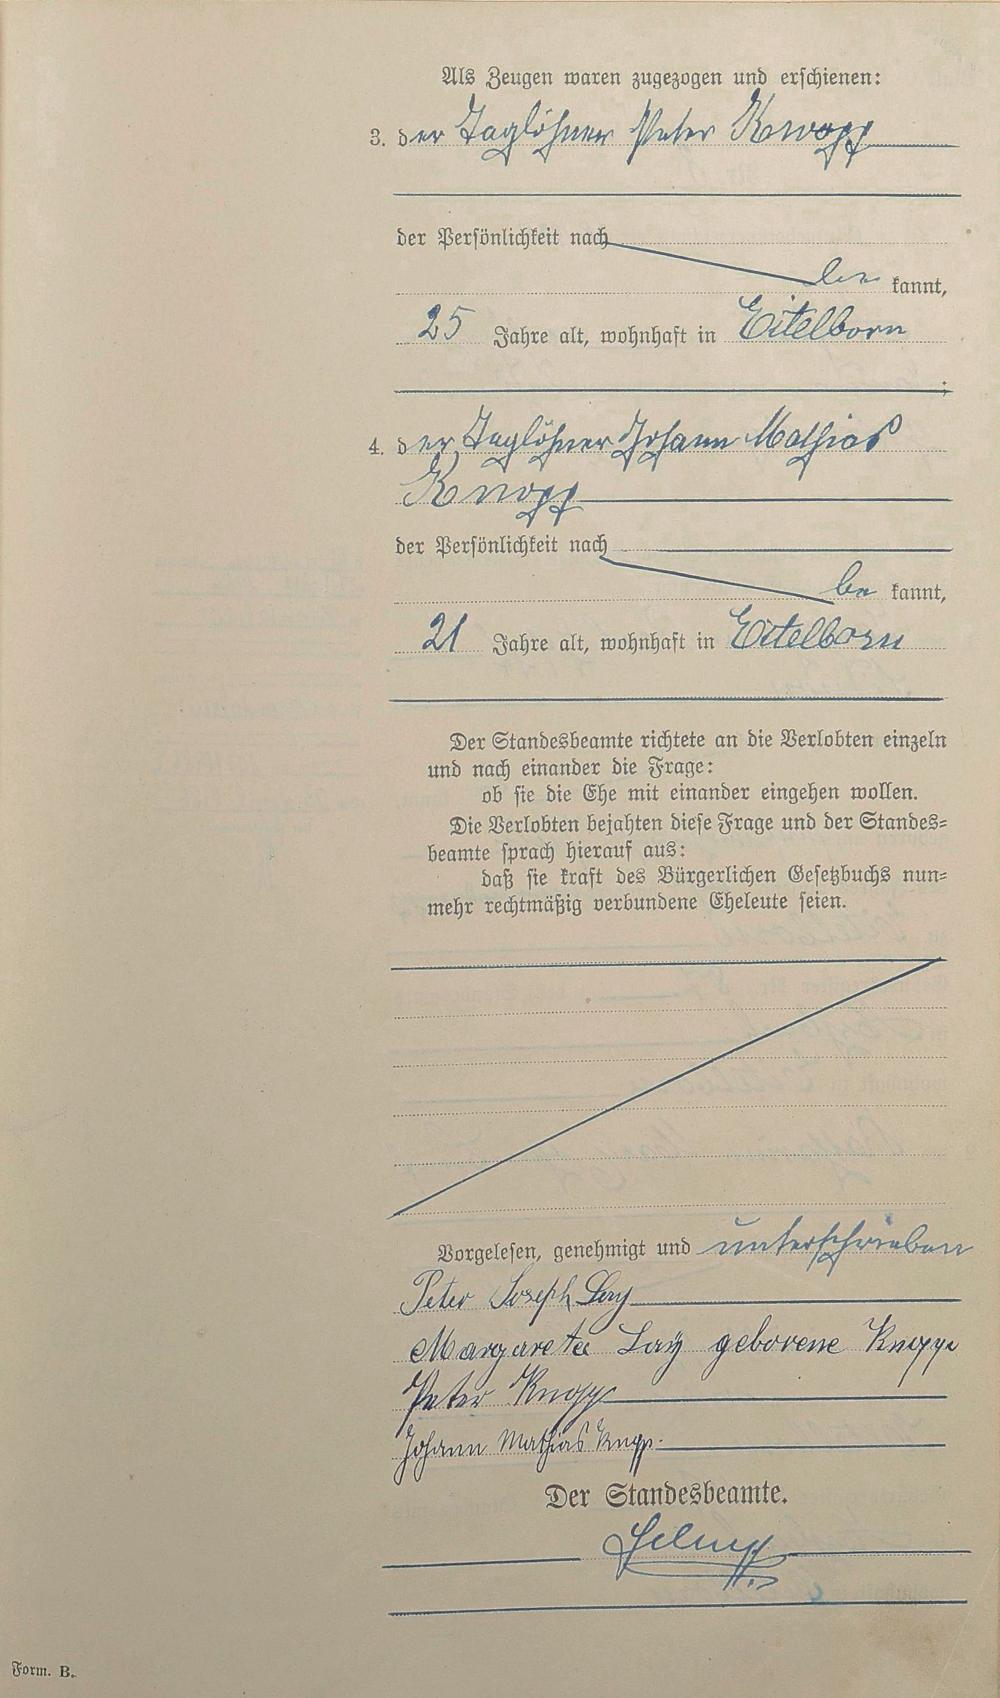 Als Zeugen waren zugezogen und erschienen:
3. der Taglöhner Peter Knopp
der Persönlichkeit nach
be kannt,
25 Jahre alt, wohnhaft in Eitelborn
;
4. der Taglöhner Johann Mathias
Knopp
der Persönlichkeit nach
be kannt,
21 Jahre alt, wohnhaft in Eitelborn
Der Standesbeamte richtete an die Verlobten einzeln
und nach einander die Frage:
ob sie die Ehe mit einander eingehen wollen.
Die Verlobten bejahten diese Frage und der Standes=
beamte sprach hierauf aus:
daß sie kraft des Bürgerlichen Gesetzbuchs nun=
mehr rechtmäßig verbundene Eheleute seien.
Vorgelesen, genehmigt und unterschrieben
Peter Joseph Lay
Margareta Laÿ geborene Knopp
Peter Knopp
Johann Mathias Knopp.
Der Standesbeamte.
Form. B.